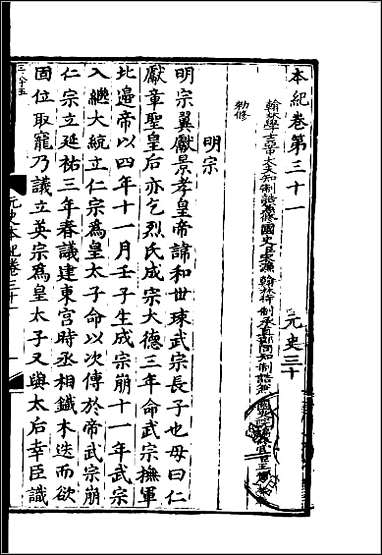 本紀卷第三十一　元史三十一
翰林學士亞中大夫知制誥兼修國史臣宋濂翰林待制承直郎同知制誥兼國史院編修官臣王禕奉
勑修
明宗
明宗翼獻景孝皇帝諱和世㻋武宗長子也母曰仁
獻章聖皇后亦乞烈氏成宗大德三年命武宗撫軍
北邊帝以四年十一月壬子生成宗崩十一年武宗
入繼大統立仁宗為皇太子命以次傳於帝武宗崩
仁宗立延祐三年春議建東宮時丞相鐵木迭而欲
固位取寵乃議立英宗為皇太子又與太后幸臣識
元史本紀卷三十一